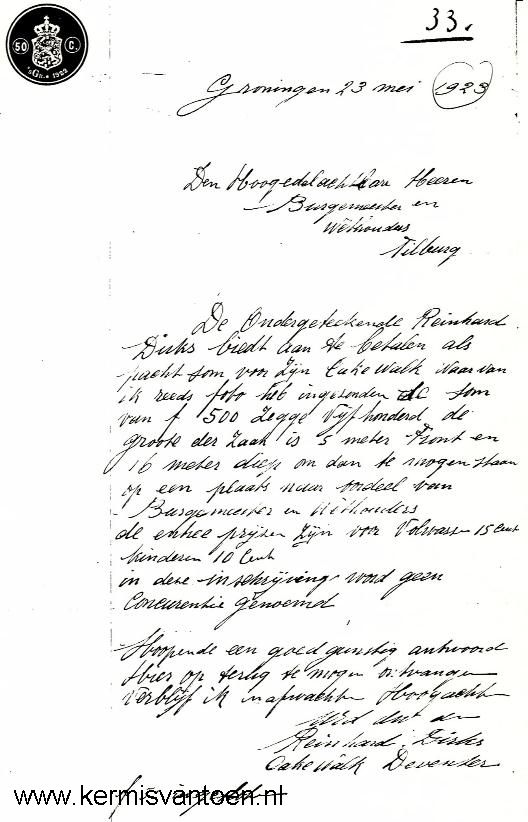 33.
50 C.
'sGr. 1922
Groningen 23 mei 1923
Den Hoogedelachtbare Heeren
Burgemeester en
Wethouders
Tilburg
De Ondergeteekende Reinhard
Dirks biedt aan te betalen als
pacht som voor Zijn Cake Walk Waar van
ik reeds foto heb ingezonden de som
van f 500 Zegge Vijfhonderd de
groote der Zaak is 5 meter Front en
16 meter diep om dan te mogen staan
op een plaats naar oordeel van
Burgemeester en Wethouders
de entree prijzen Zijn voor Volwass 15 Cent
kinderen 10 Cent
in deze inschrijving word geen
Concurentie genoemd
Hoopende een goed gunstig antwoord
Hier op terug te mogen ontvangen
Verblijf ik inafwachten Hoogacht
Reinhard Dirks
Cake Walk Deventer
www.kermisvantoen.nl